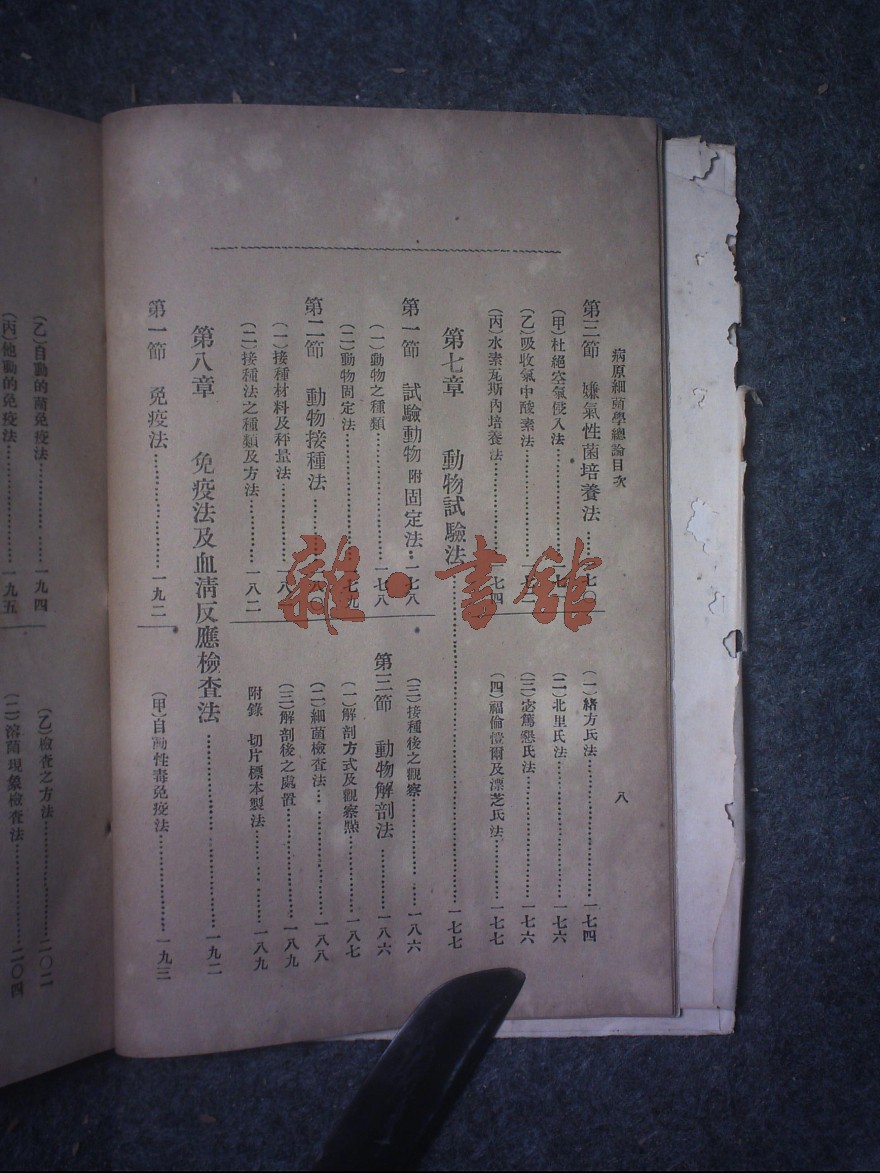 病原細菌學總論目次
八
第三節 嫌氣性菌培養法
(甲)杜絕空氣侵入法
(乙)吸收氣中酸素法
(丙)水素瓦斯內培養法
(一)緒方氏法 一七四
(二)北里氏法 一七六
(三)宓篤懇氏法 一七六
(四)福倫愷爾及漂芝氏法 一七七
第七章 動物試驗法 一七七
第一節 試驗動物 附固定法 一七八
(一)動物之種類 一七八
(二)動物固定法 一七九
第二節 動物接種法
(一)接種材料及秤量法
(二)接種法之種類及方法 一八二
(三)接種後之觀察 一八六
第三節 動物解剖法 一八六
(一)解剖方式及觀察點 一八七
(二)細菌檢查法 一八八
(三)解剖後之處置 一八九
附錄 切片標本製法 一八九
第八章 免疫法及血清反應檢查法 一九二
第一節 免疫法 一九二
(甲)自動性毒免疫法 一九三
(乙)自動的菌免疫法 一九四
(丙)他動的免疫法 一九五
(乙)檢查之方法 二〇二
(二)溶菌現象檢查法 二〇四
雜·書館